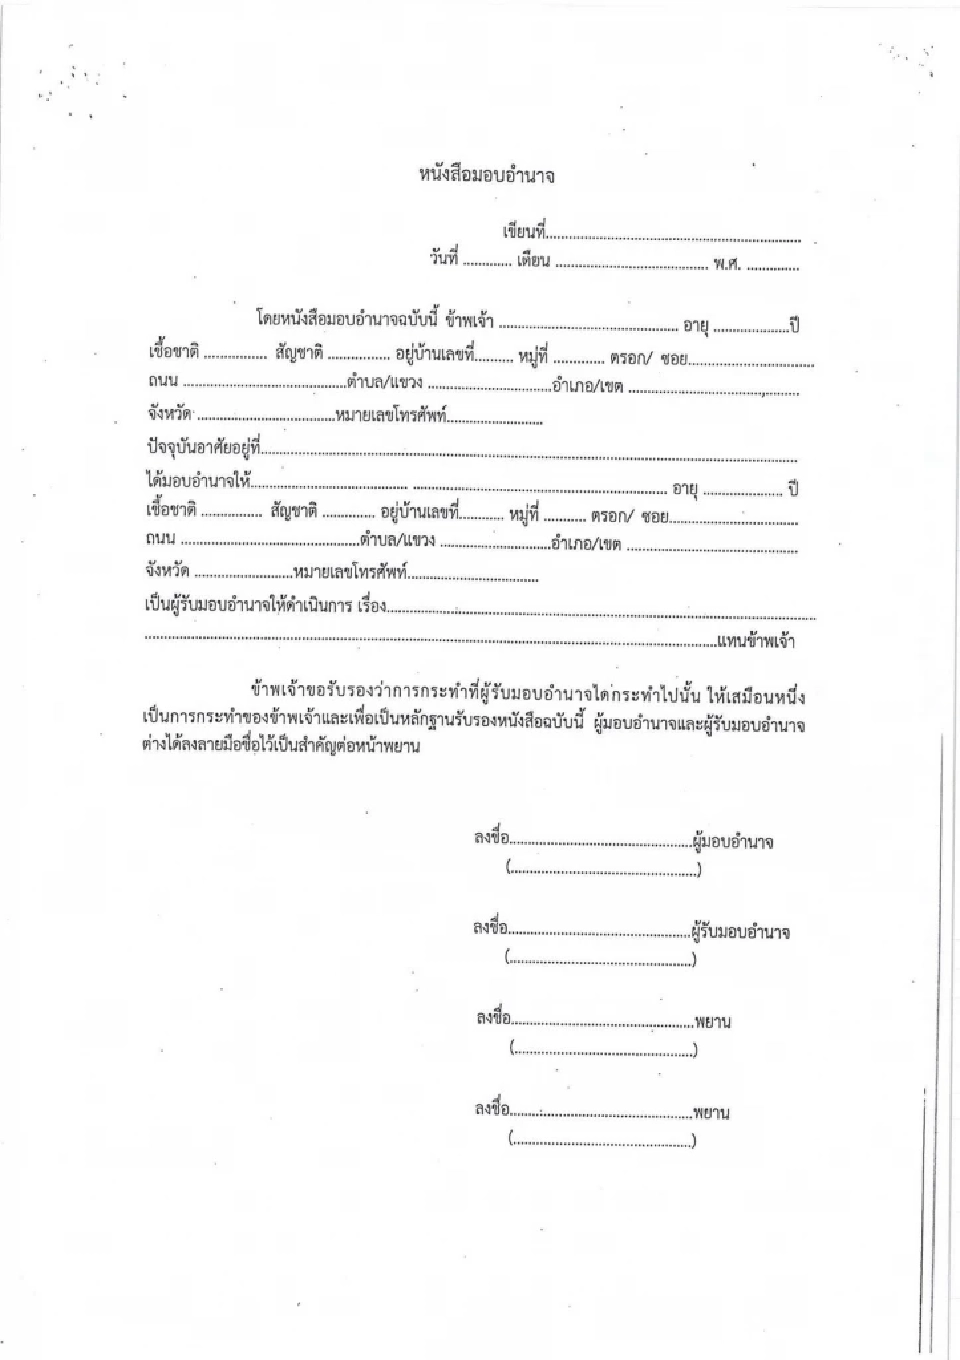 หนังสือมอบอำนาจ
เขียนที่................................................................
วันที่ ............. เดือน ........................................ พ.ศ. ..............
โดยหนังสือมอบอำนาจฉบับนี้ ข้าพเจ้า ............................................... อายุ ....................ปี
เชื้อชาติ ................ สัญชาติ ................ อยู่บ้านเลขที่.......... หมู่ที่ ............. ตรอก/ ซอย.................................
ถนน ...........................................ตำบล/แขวง ................................อำเภอ/เขต .............................................
จังหวัด ....................................หมายเลขโทรศัพท์.........................
ปัจจุบันอาศัยอยู่ที่.............................................................................................................................................
ได้มอบอำนาจให้......................................... .................................................................. อายุ ..................... ปี
เชื้อชาติ ................ สัญชาติ .............. อยู่บ้านเลขที่............ หมู่ที่ ........... ตรอก/ ซอย..................................
ถนน ...............................................ตำบล/แขวง .............................อำเภอ/เขต .............................................
จังหวัด ..........................หมายเลขโทรศัพท์...................................
เป็นผู้รับมอบอำนาจให้ดำเนินการ เรื่อง.................................................................................................................
.......................................................................................................................................................แทนข้าพเจ้า
ข้าพเจ้าขอรับรองว่าการกระทำที่ผู้รับมอบอำนาจได้กระทำไปนั้น ให้เสมือนหนึ่ง
เป็นการกระทำของข้าพเจ้าและเพื่อเป็นหลักฐานรับรองหนังสือฉบับนี้ ผู้มอบอำนาจและผู้รับมอบอำนาจ
ต่างได้ลงลายมือชื่อไว้เป็นสำคัญต่อหน้าพยาน
ลงชื่อ................................................ผู้มอบอำนาจ
(.................................................)
ลงชื่อ................................................ผู้รับมอบอำนาจ
(................................................)
ลงชื่อ................................................พยาน
(...............................................)
ลงชื่อ................................................พยาน
(...............................................)